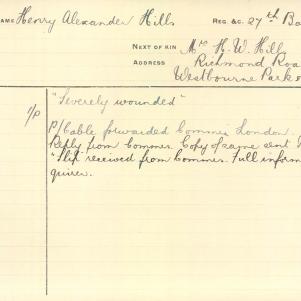 NAME Henry Alexander Hills REG. &C. 27th Ba
NEXT OF KIN Mr H. W. Hills
ADDRESS Richmond Roa
Westbourne Park
"Severely wounded"
P/Cable forwarded Commis London.
Reply from Commis. Copy of same sent
"Slip" received from Commis. Full inform
quirer.